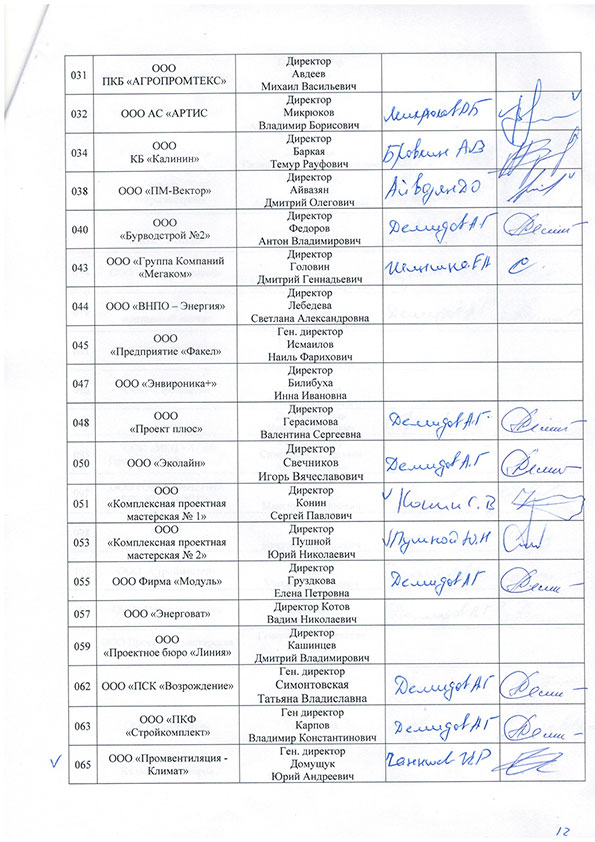 031
ООО
ПКБ «АГРОПРОМТЕКС»
Директор
Авдеев
Михаил Васильевич
032
ООО АС «АРТИС
Директор
Микрюков
Владимир Борисович
Микрюков В.Б
034
ООО
КБ «Калинин»
Директор
Баркая
Темур Рауфович
Бровкин А.В
038
ООО «ПМ-Вектор»
Директор
Айвазян
Дмитрий Олегович
Айвазян ДО
040
ООО
«Бурводстрой №2»
Директор
Федоров
Антон Владимирович
Демидов АГ
043
ООО «Группа Компаний
«Мегаком»
Директор
Головин
Дмитрий Геннадьевич
044
ООО «ВНПО – Энергия»
Директор
Лебедева
Светлана Александровна
045
ООО
«Предприятие «Факел»
Ген. директор
Исмаилов
Наиль Фарихович
047
ООО «Энвироника+»
Директор
Билибуха
Инна Ивановна
048
ООО
«Проект плюс»
Директор
Герасимова
Валентина Сергеевна
Демидов А.Г.
050
ООО «Эколайн»
Директор
Свечников
Игорь Вячеславович
Демидов А.Г
051
ООО
«Комплексная проектная
мастерская № 1»
Директор
Конин
Сергей Павлович
Конин С.В
053
ООО
«Комплексная проектная
мастерская № 2»
Директор
Пушной
Юрий Николаевич
Пушной Ю.Н
055
ООО Фирма «Модуль»
Директор
Груздкова
Елена Петровна
Демидов АГ
057
ООО «Энерговат»
Директор Котов
Вадим Николаевич
059
ООО
«Проектное бюро «Линия»
Директор
Кашинцев
Дмитрий Владимирович
062
ООО «ПСК «Возрождение»
Ген. директор
Симонтовская
Татьяна Владиславна
Демидов АГ
063
ООО «ПКФ
«Стройкомплект»
Ген директор
Карпов
Владимир Константинович
Демидов АГ
065
ООО «Промвентиляция -
Климат»
Ген. директор
Домущук
Юрий Андреевич
12